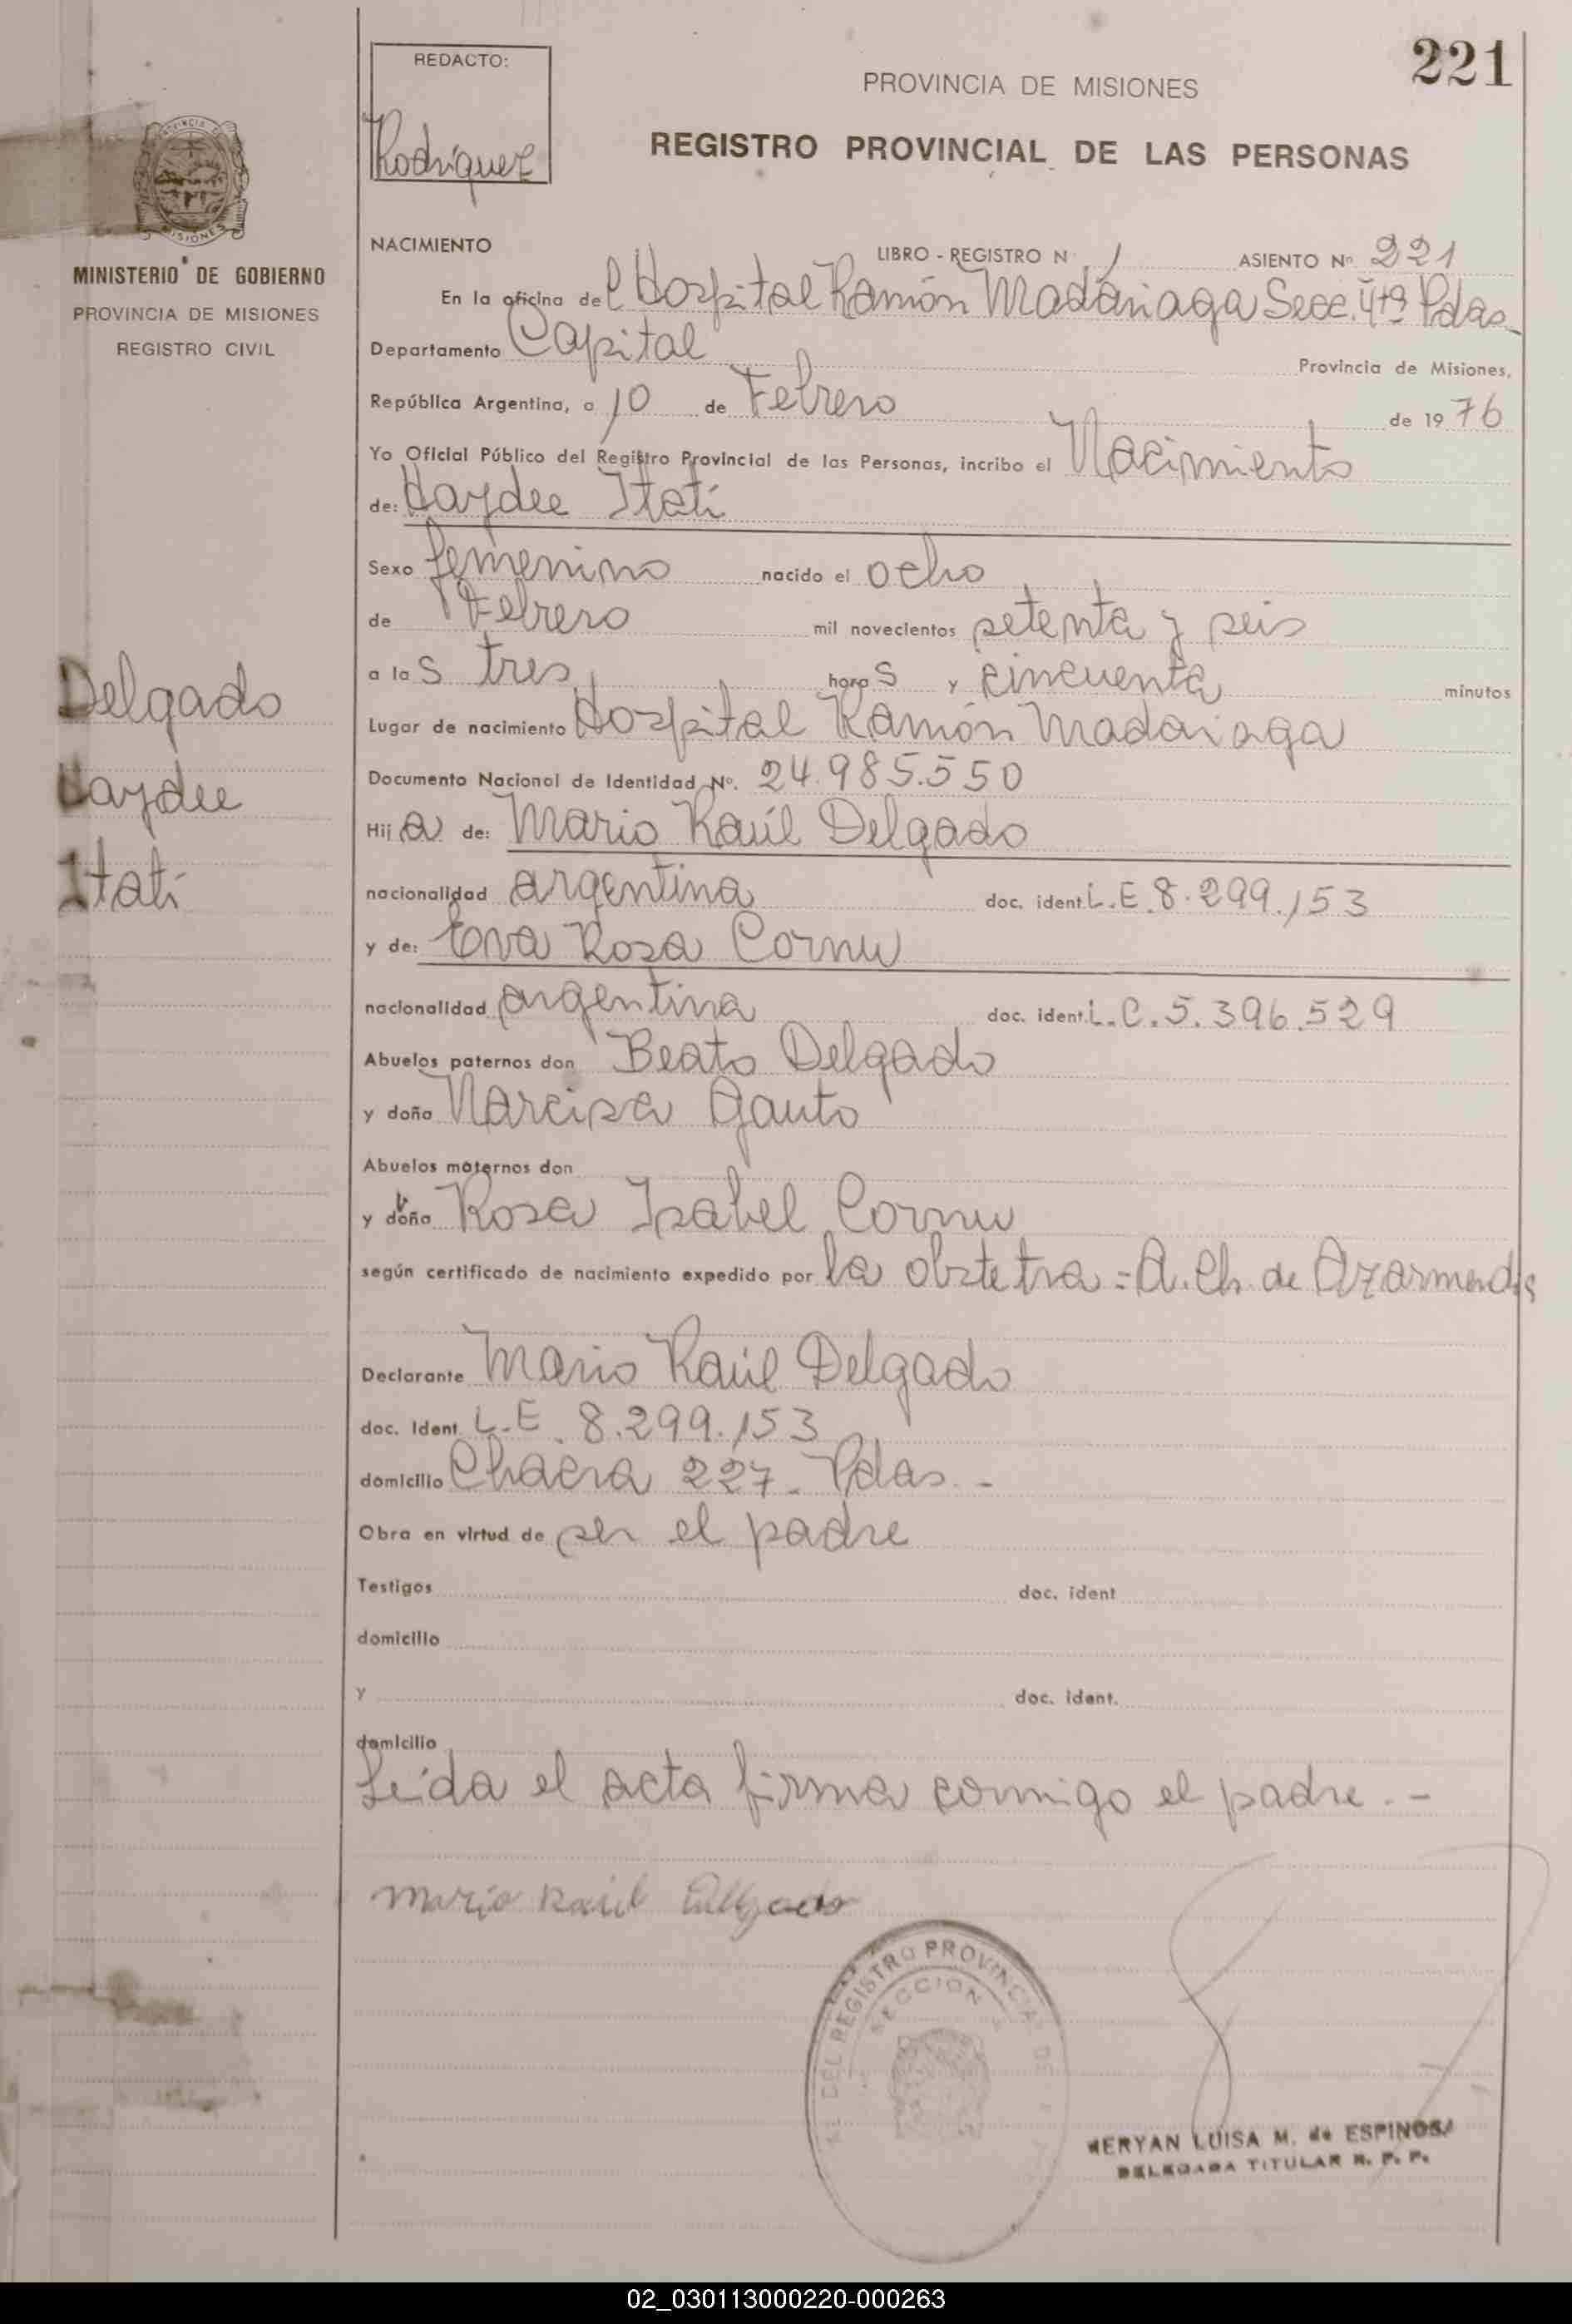 REDACTO:
Rodríguez
221
PROVINCIA DE MISIONES
REGISTRO PROVINCIAL DE LAS PERSONAS
PROVINCIA
MISIONES
MINISTERIO DE GOBIERNO
PROVINCIA DE MISIONES
REGISTRO CIVIL
NACIMIENTO LIBRO - REGISTRO N 1 ASIENTO Nº 221
En la oficina del Hospital Ramón Madariaga Secc. 4ta Pdas.
Departamento Capital Provincia de Misiones,
República Argentina, a 10 de Febrero de 1976
Yo Oficial Público del Registro Provincial de las Personas, incribo el Nacimiento
de: Haydee Itatí
Sexo femenino nacido el ocho
de Febrero mil novecientos setenta y seis
a las tres horas y cincuenta minutos
Delgado
Haydee
Itatí
Lugar de nacimiento Hospital Ramón Madariaga
Documento Nacional de Identidad Nº. 24.985.550
Hija de: Mario Raúl Delgado
nacionalidad argentina doc. ident. L.E. 8.299.153
y de: Eva Rosa Cornu
nacionalidad argentina doc. ident. L.C. 5.396.529
Abuelos paternos don Beato Delgado
y doña Narcisa Gauto
Abuelos maternos don
y doña Rosa Isabel Cornu
según certificado de nacimiento expedido por la obstetra = A. Ch. de Azarmendis
Declarante Mario Raúl Delgado
doc. Ident. L.E. 8.299.153
domicilio Chacra 227 - Pdas. -
Obra en virtud de ser el padre
Testigos doc. ident
domicilio
y doc. ident.
domicilio
Leída el acta firma conmigo el padre. -
Mario Raúl Delgado
DEL REGISTRO PROVINCIAL DE
SECCION
MERYAN LUISA M. de ESPINOSA
DELEGADA TITULAR R. P. P.
02_030113000220-000263